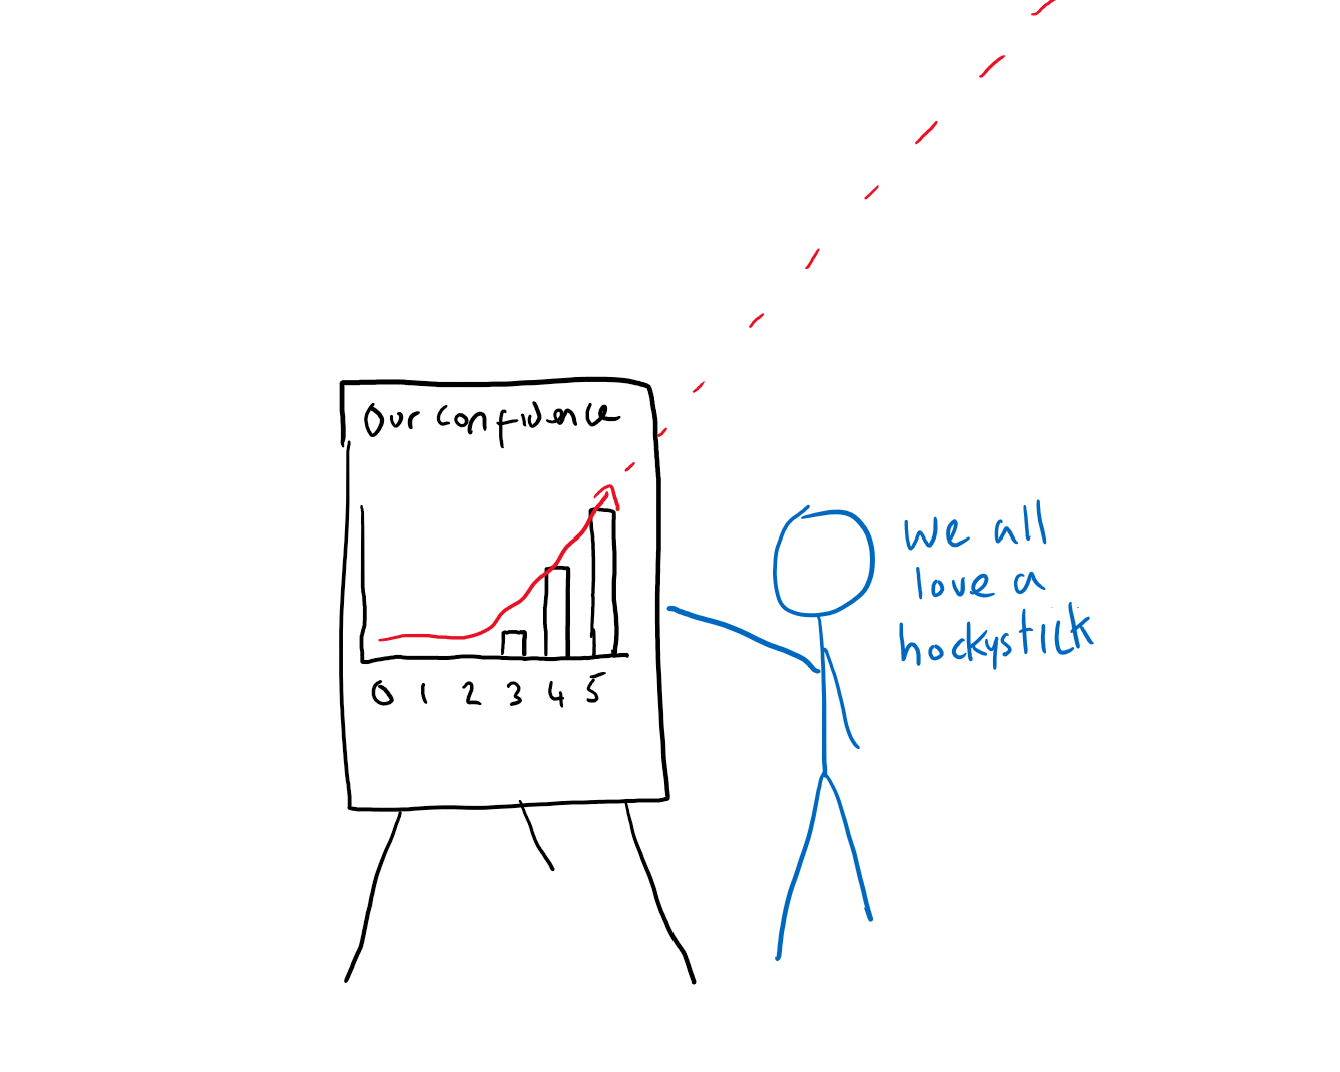 Our confidence
0 1 2 3 4 5
we all
love a
hockystick